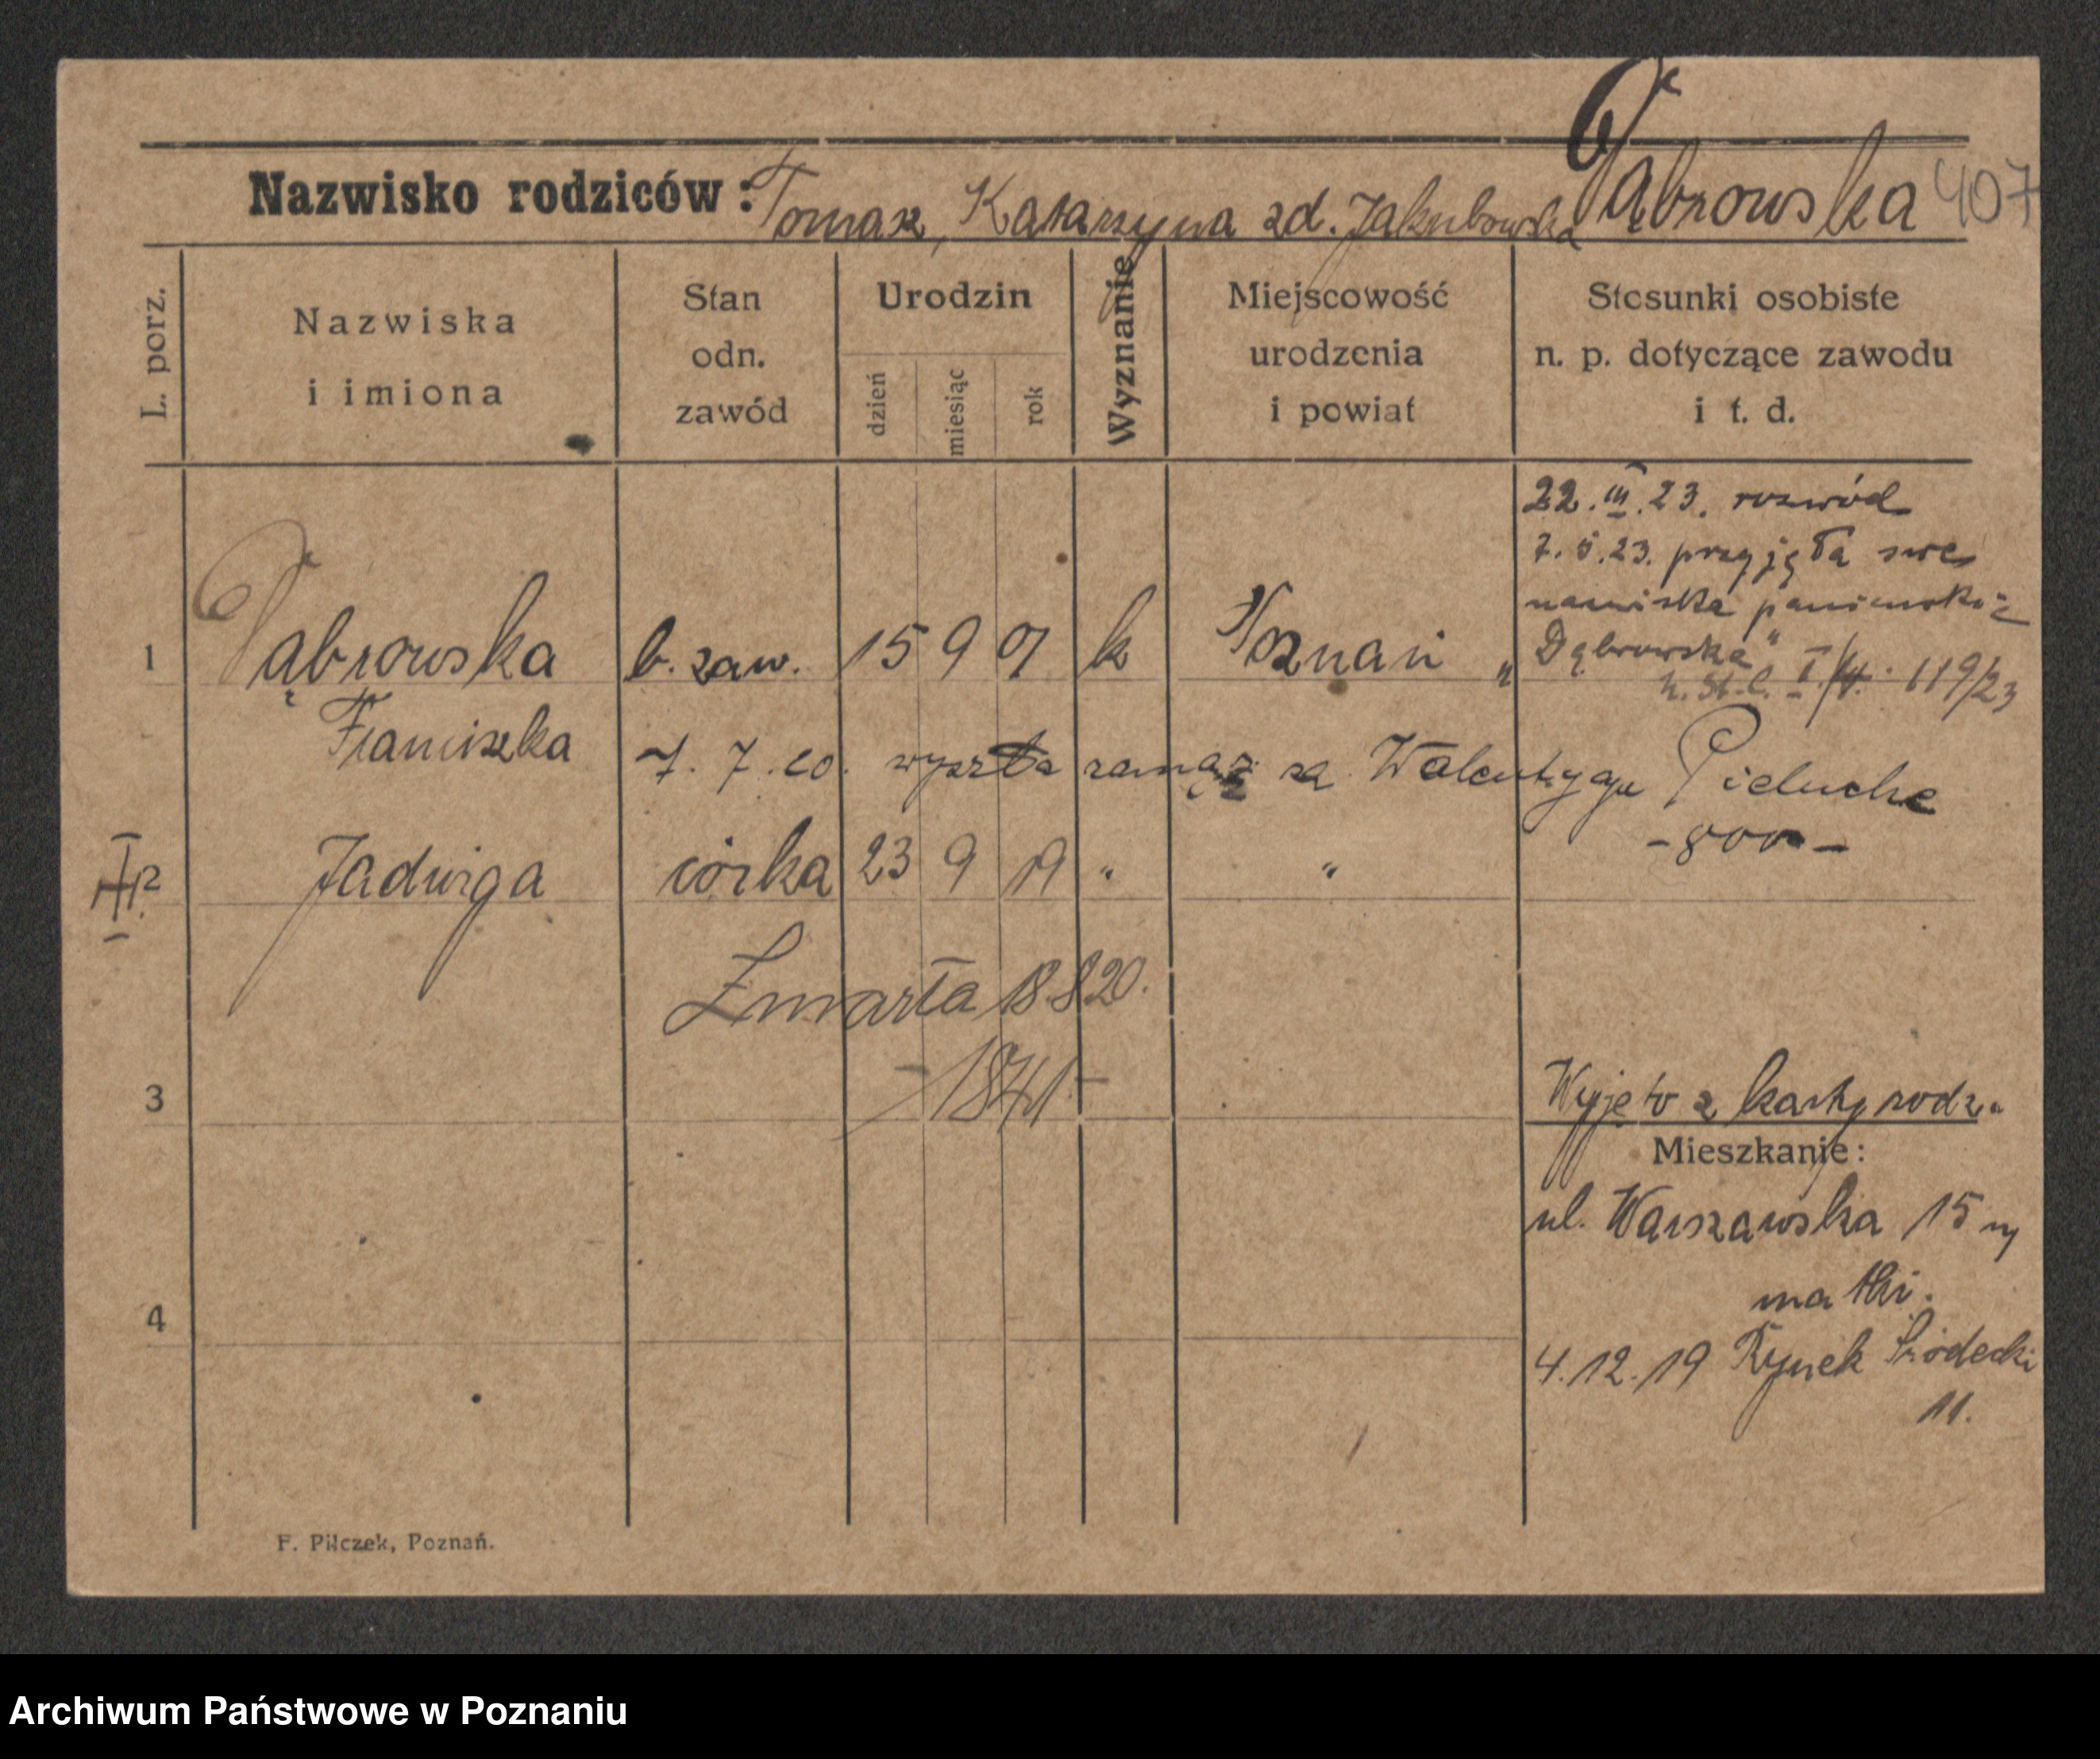 Dąbrowska 407
Nazwisko rodziców: Tomasz, Katarzyna zd. Jakubowska
L. porz.
Nazwiska i imiona
Stan odn. zawód
Urodzin
dzień
miesiąc
rok
Wyznanie
Miejscowość urodzenia i powiat
Stosunki osobiste n. p. dotyczące zawodu i t. d.
22.III.23. rozwód
7.5.23. przyjęła swe
nazwiska panieńskie
„Dąbrowska"
119/23
1 Dąbrowska b. zaw. 15 9 01 k Poznań
Franciszka
7.7.20. wyszła zamąż za Walentyego
-800-
2 Jadwiga córka 23 9 19 " "
Zmarła 18.8.20.
-1841-
3
Wyjęto z karty rodz.
Mieszkanie:
ul. Warszawska 15
matki.
4
4.12.19 Rynek Śródecki
11.
F. Pilczek, Poznań.
Archiwum Państwowe w Poznaniu